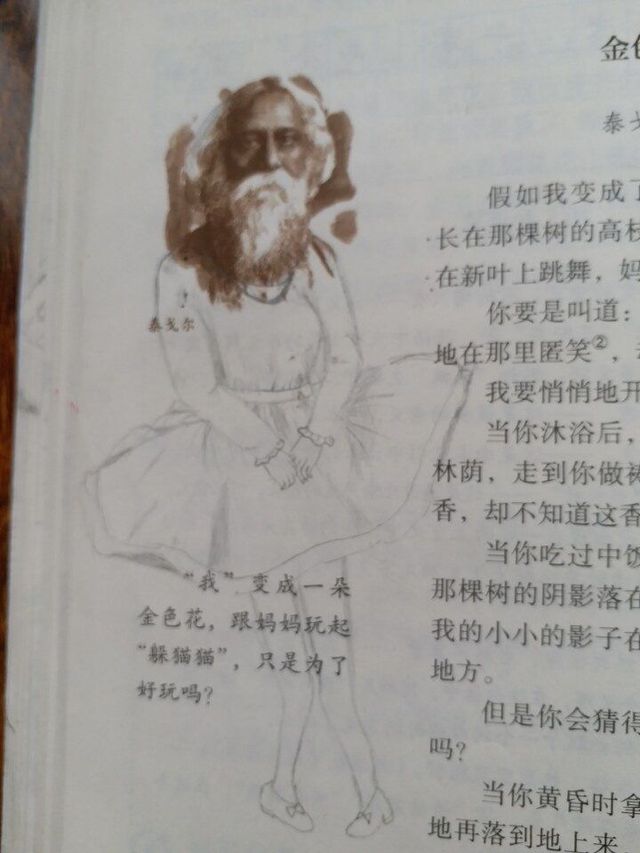 金色
泰戈
假如我变成了
长在那棵树的高枝
在新叶上跳舞，妈
你要是叫道：
地在那里匿笑②，
我要悄悄地开
当你沐浴后，
林荫，走到你做祷
香，却不知道这香
当你吃过中饭
那棵树的阴影落在
我的小小的影子在
地方。
但是你会猜得
吗？
当你黄昏时拿
地再落到地上来，
泰戈尔
“我”变成一朵
金色花，跟妈妈玩起
“躲猫猫”，只是为了
好玩吗？